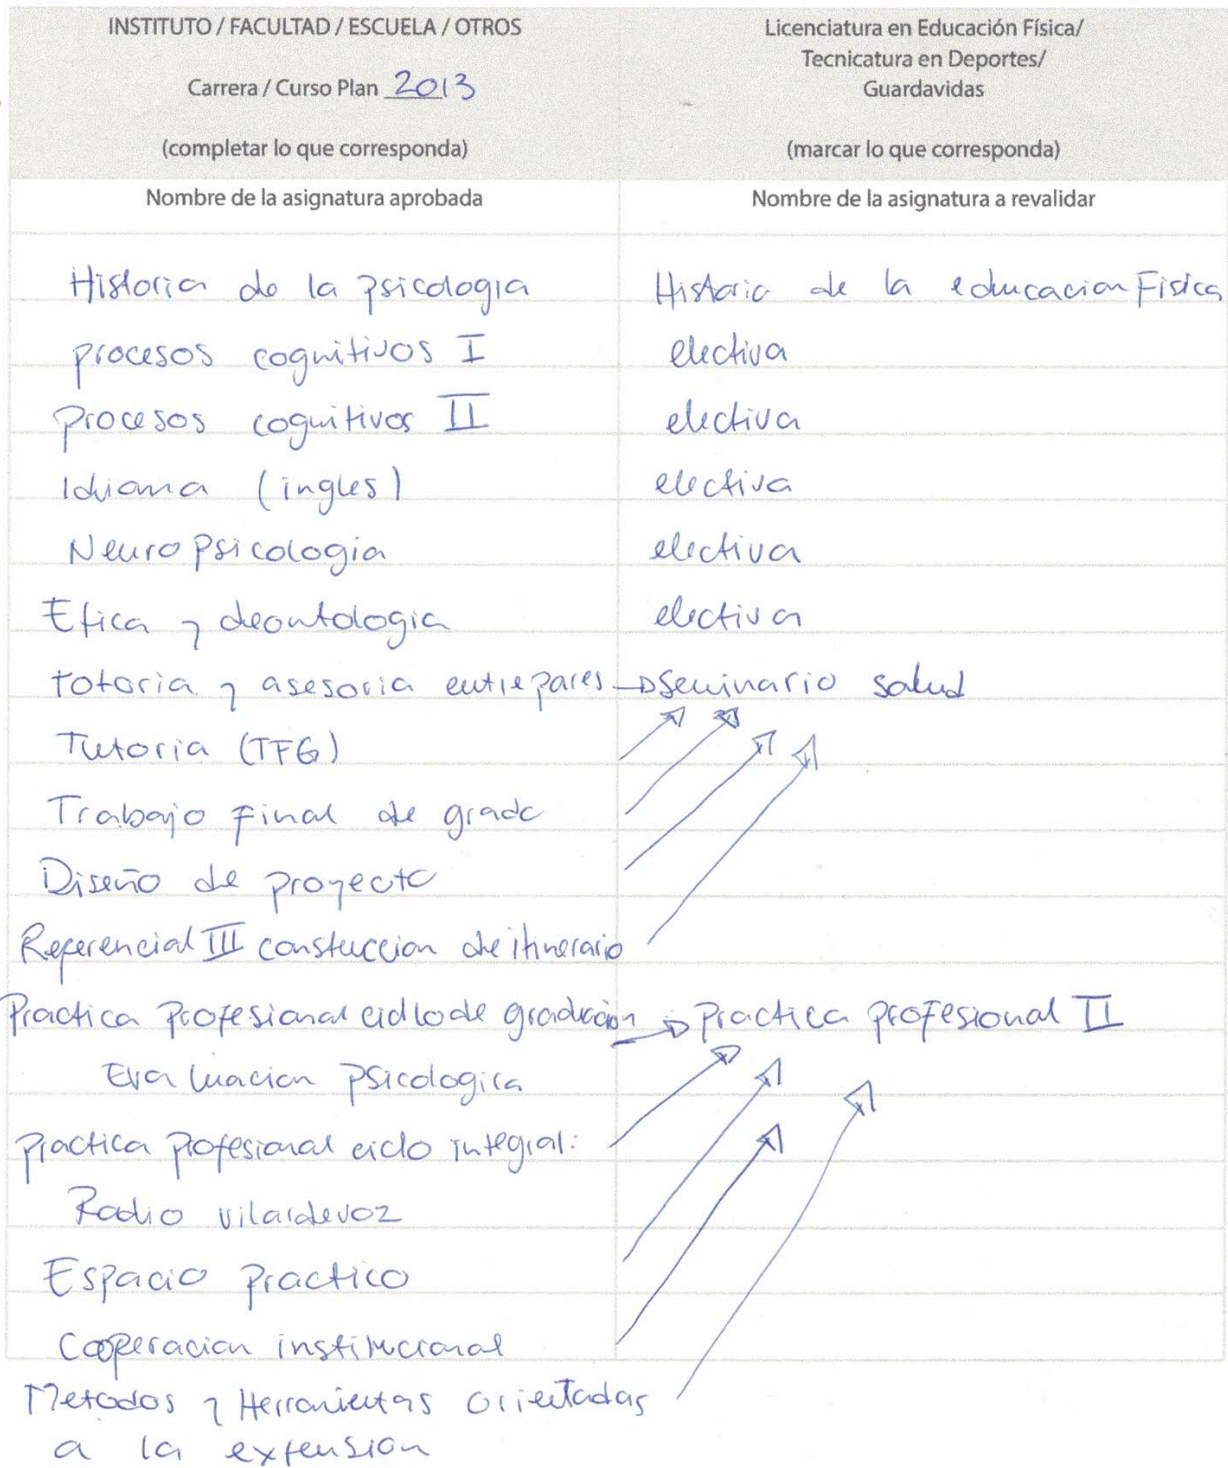 INSTITUTO / FACULTAD / ESCUELA / OTROS
Carrera / Curso Plan 2013
(completar lo que corresponda)
Licenciatura en Educación Física/
Tecnicatura en Deportes/
Guardavidas
(marcar lo que corresponda)
Nombre de la asignatura aprobada Nombre de la asignatura a revalidar
Historia de la psicologia Historia de la educacion Fisica
procesos cognitivos I electiva
procesos cognitivos II electiva
Idioma (ingles) electiva
Neuropsicologia electiva
Etica y deontologia electiva
totoria y asesoria entre pares → seminario salud
Tutoria (TFG)
Trabajo final de grado
Diseño de proyecto
Referencial III constuccion de itinerario
Practica Profesional ciclo de graduación → practica profesional II
Evaluacion psicologica
practica profesional ciclo integral:
Radio vilardevoz
Espacio practico
Cooperacion institucional
Metodos y Herramientas orientadas
a la extension